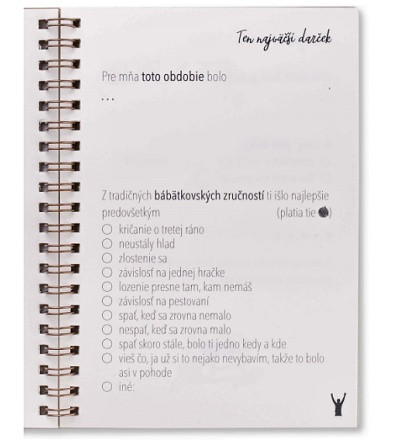 Ten najväčší darček
Pre mňa toto obdobie bolo
...
Z tradičných bábätkovských zručností ti išlo najlepšie
predovšetkým (platia tie)
kričanie o tretej ráno
neustály hlad
zlostenie sa
závislosť na jednej hračke
lozenie presne tam, kam nemáš
závislosť na pestovaní
spať, keď sa zrovna nemalo
nespať, keď sa zrovna malo
spať skoro stále, bolo ti jedno kedy a kde
vieš čo, ja už si to nejako nevybavím, takže to bolo
asi v pohode
iné: